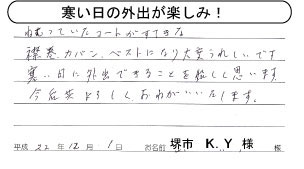 寒い日の外出が楽しみ！
ねむっていたコートがすてきな
襟巻、カバン、ベストになり大変うれしいです
寒い日に外出できることを楽しく思います。
今后共よろしくおねがいいたします。
平成 22 年 12 月 1 日 お名前 堺市 K.Y 様 様